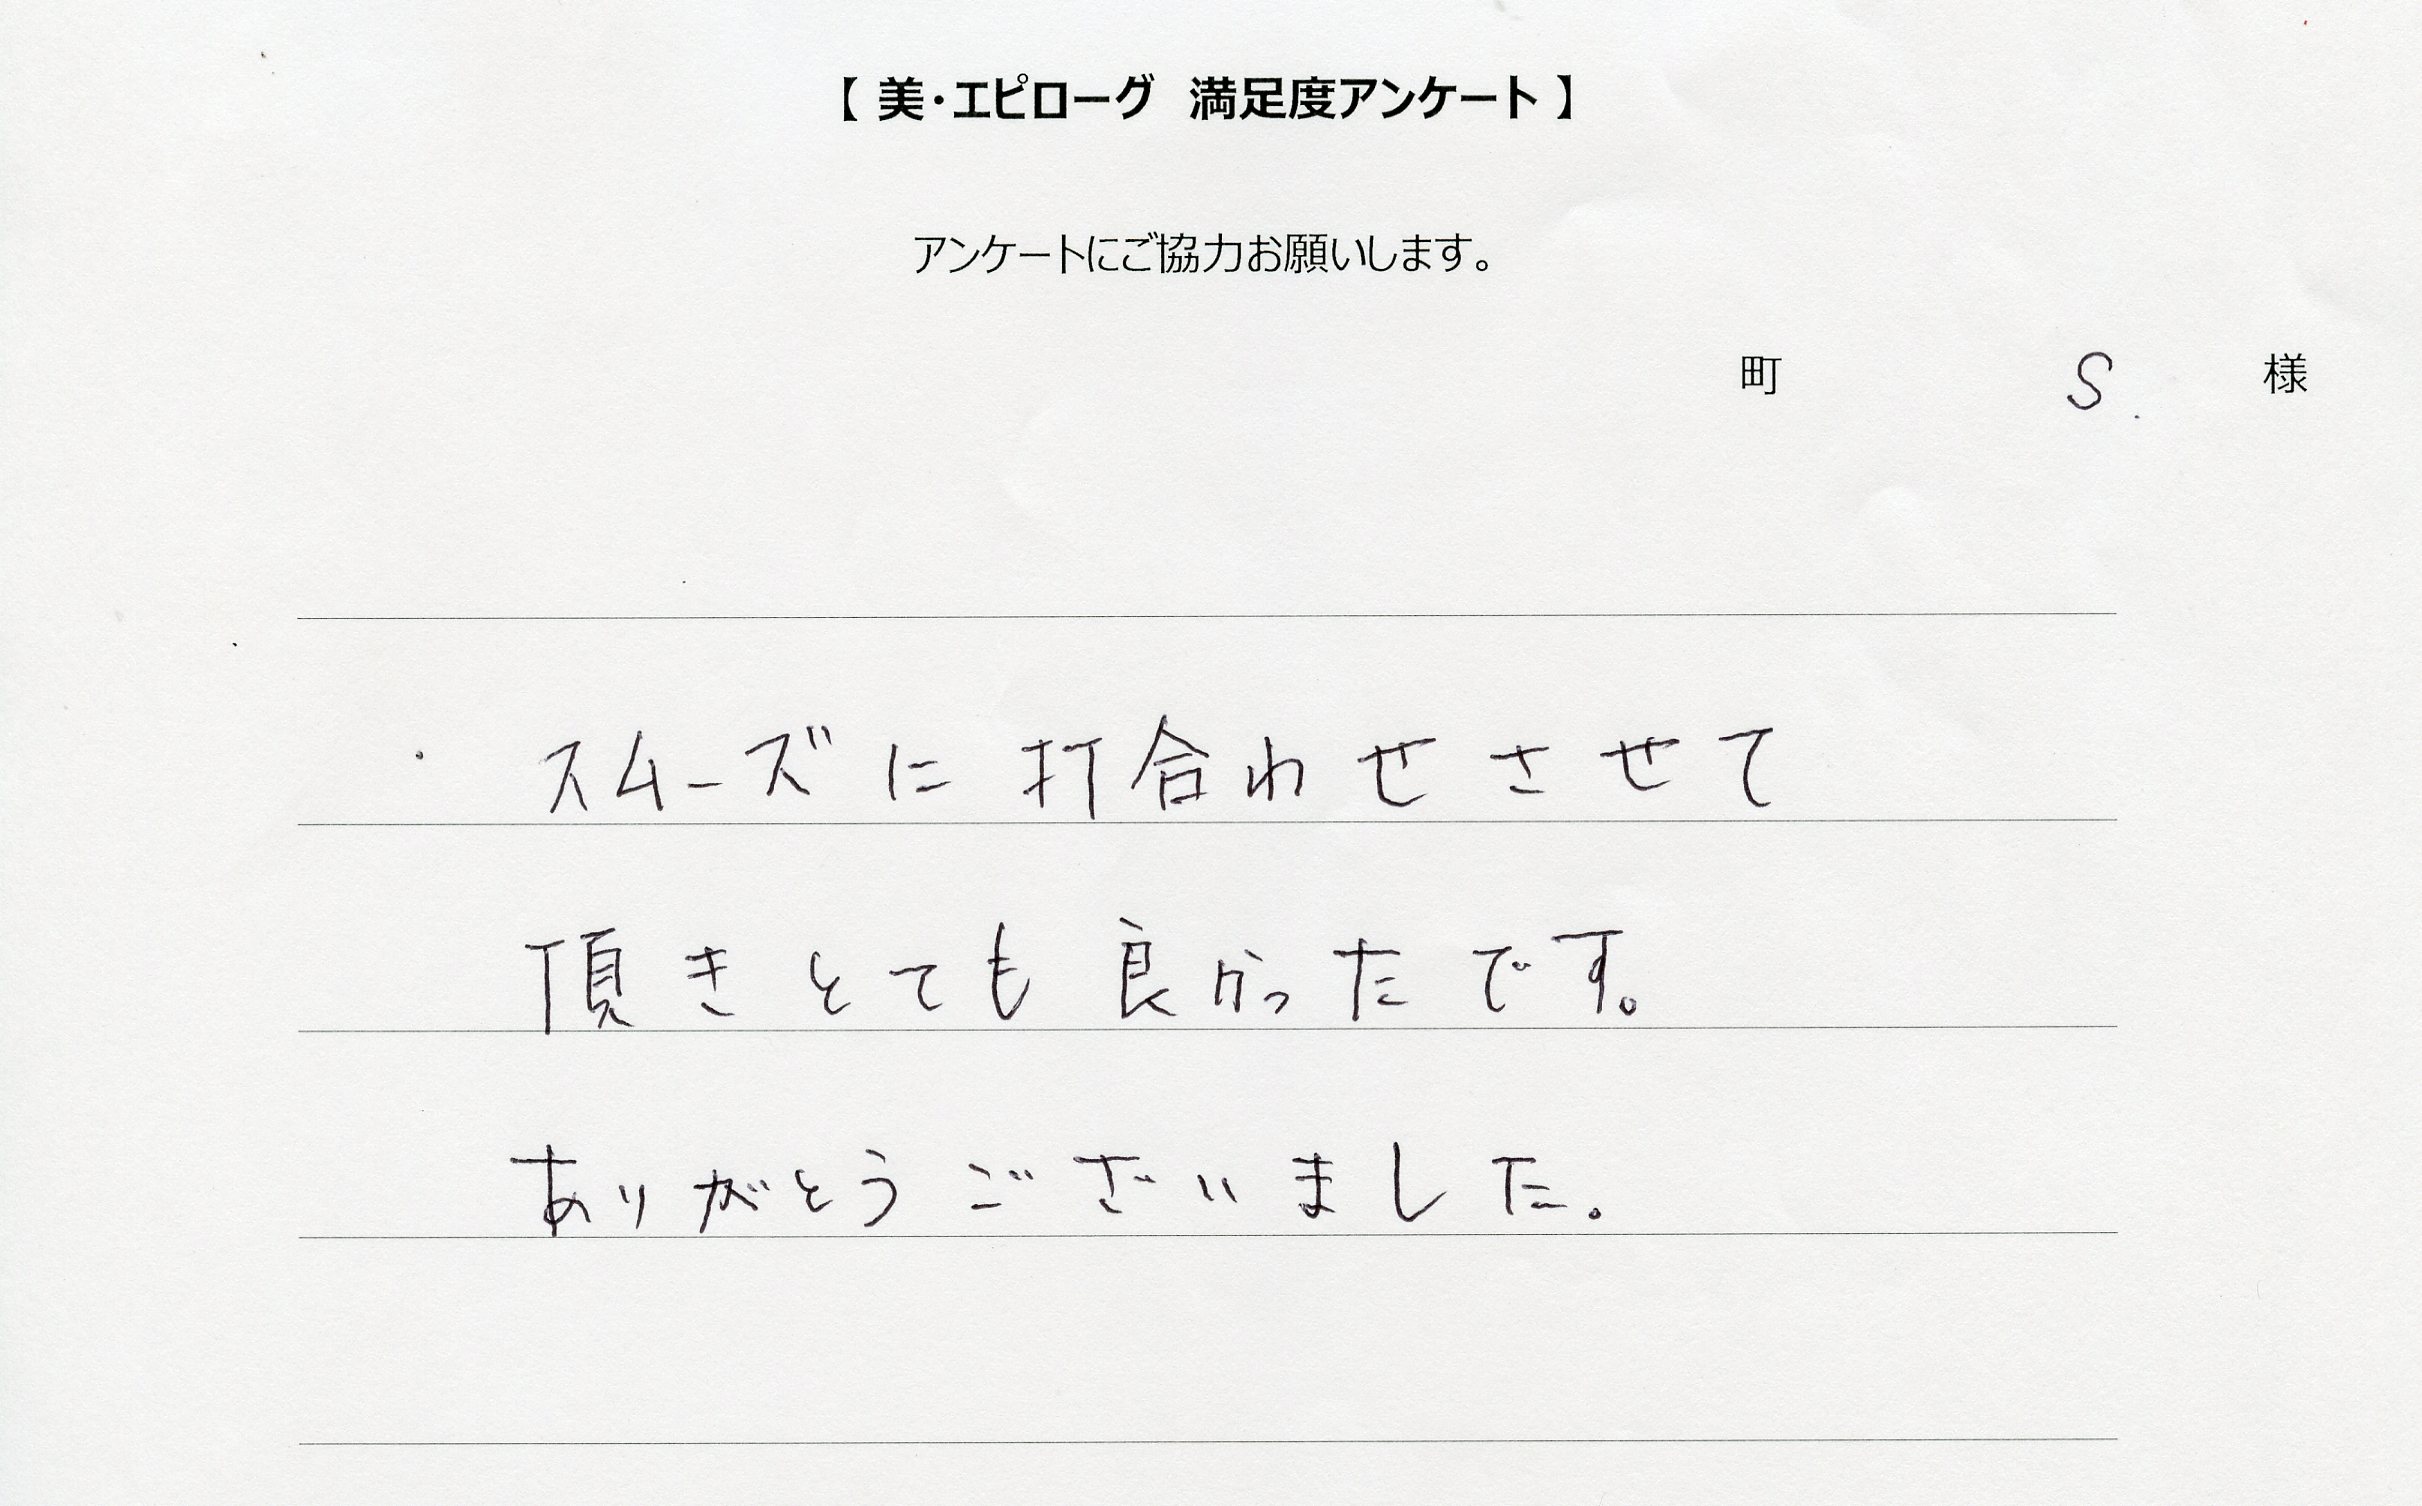 【 美・エピローグ　満足度アンケート 】
アンケートにご協力お願いします。
町　S.　様
・スムーズに打合わせさせて
頂きとても良かったです。
ありがとうございました。